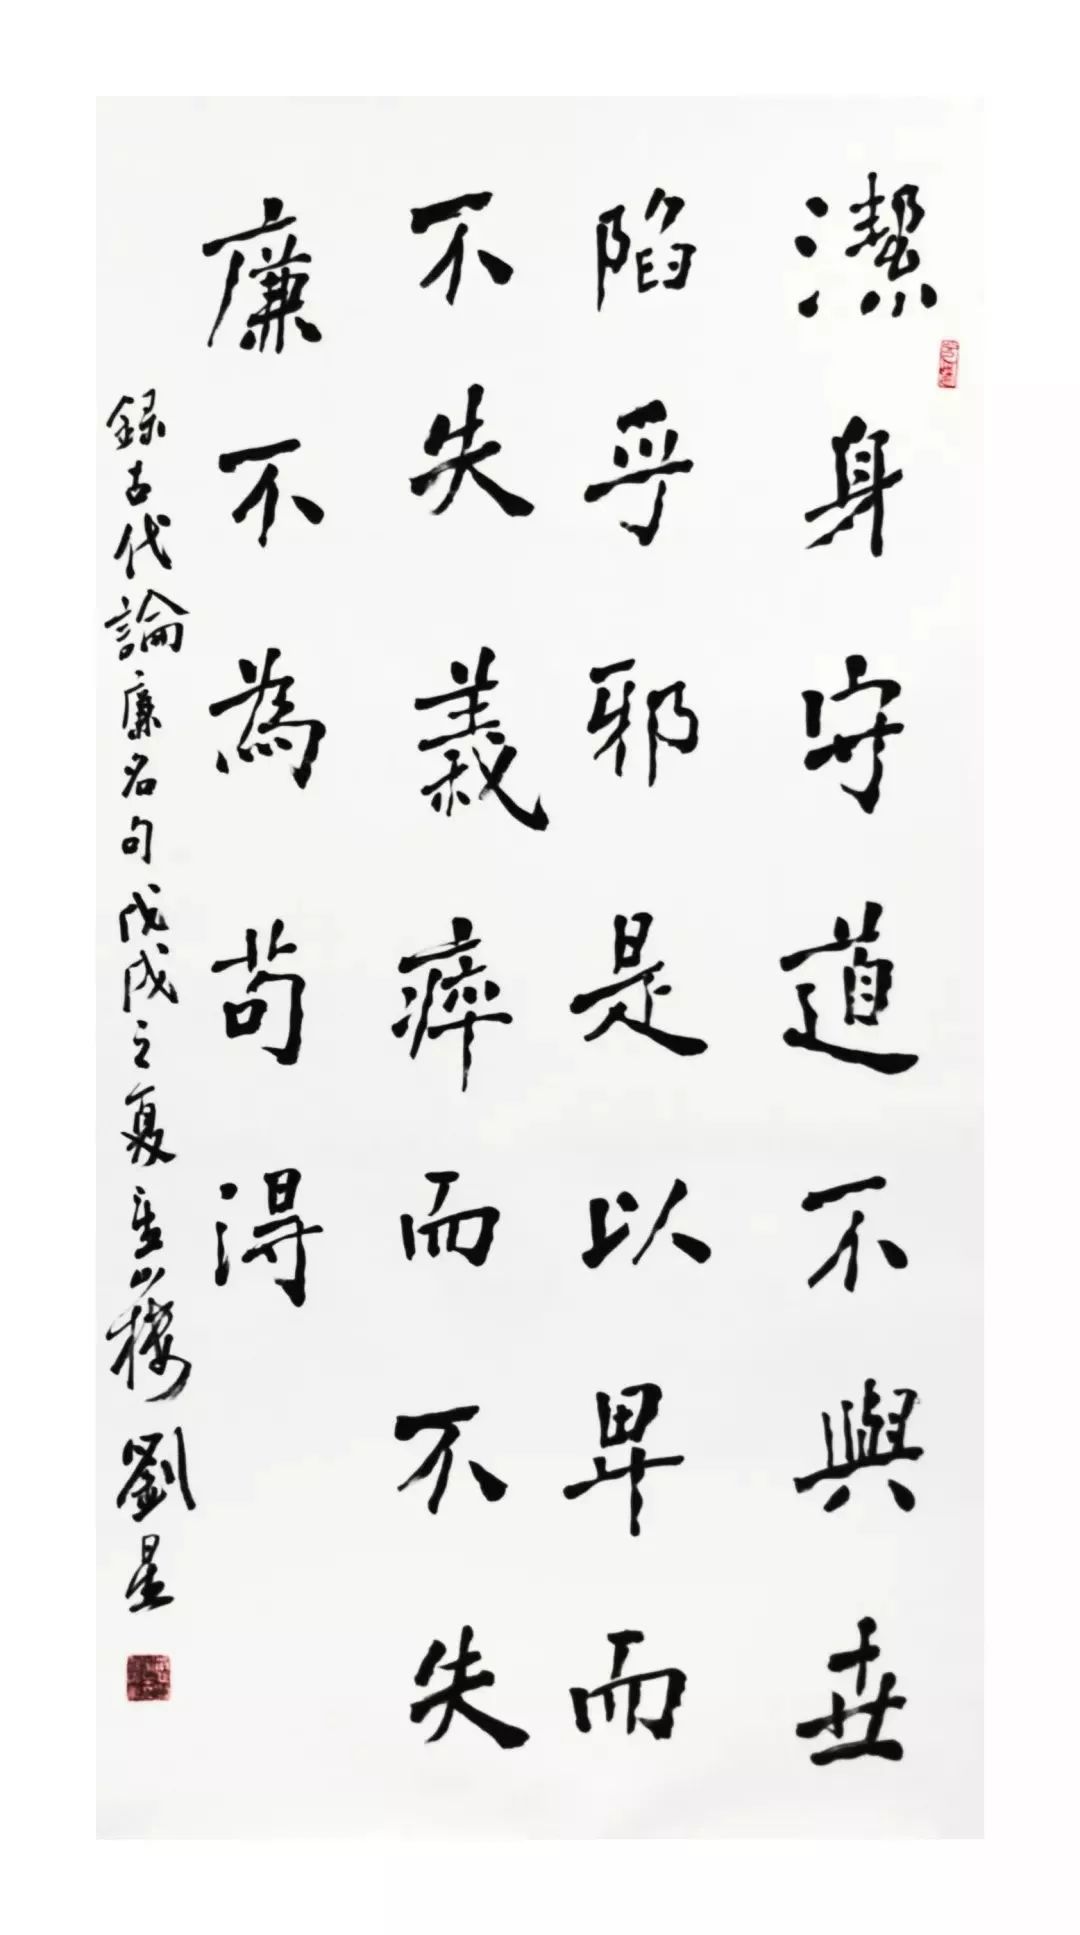 潔身守道不與世
陷乎邪是以卑而
不失義瘁而不失
廉不為苟得
録古代論廉名句戊戌之夏山樓劉星